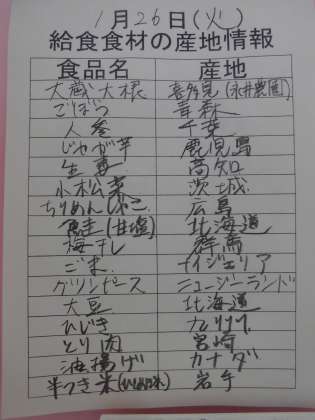 1月26日(火)
給食食材の産地情報
食品名 産地
大蔵大根 喜多見(永井農園)
ごぼう 青森
人参 千葉
じゃが芋 鹿児島
生姜 高知
小松菜 茨城
ちりめんじゃこ 広島
鮭(甘塩) 北海道
梅干し 群馬
ごま ナイジェリア
グリンピース ニュージーランド
大豆 北海道
ひじき 九州
とり肉 宮崎
油揚げ カナダ
半つき米(ひとめぼれ) 岩手